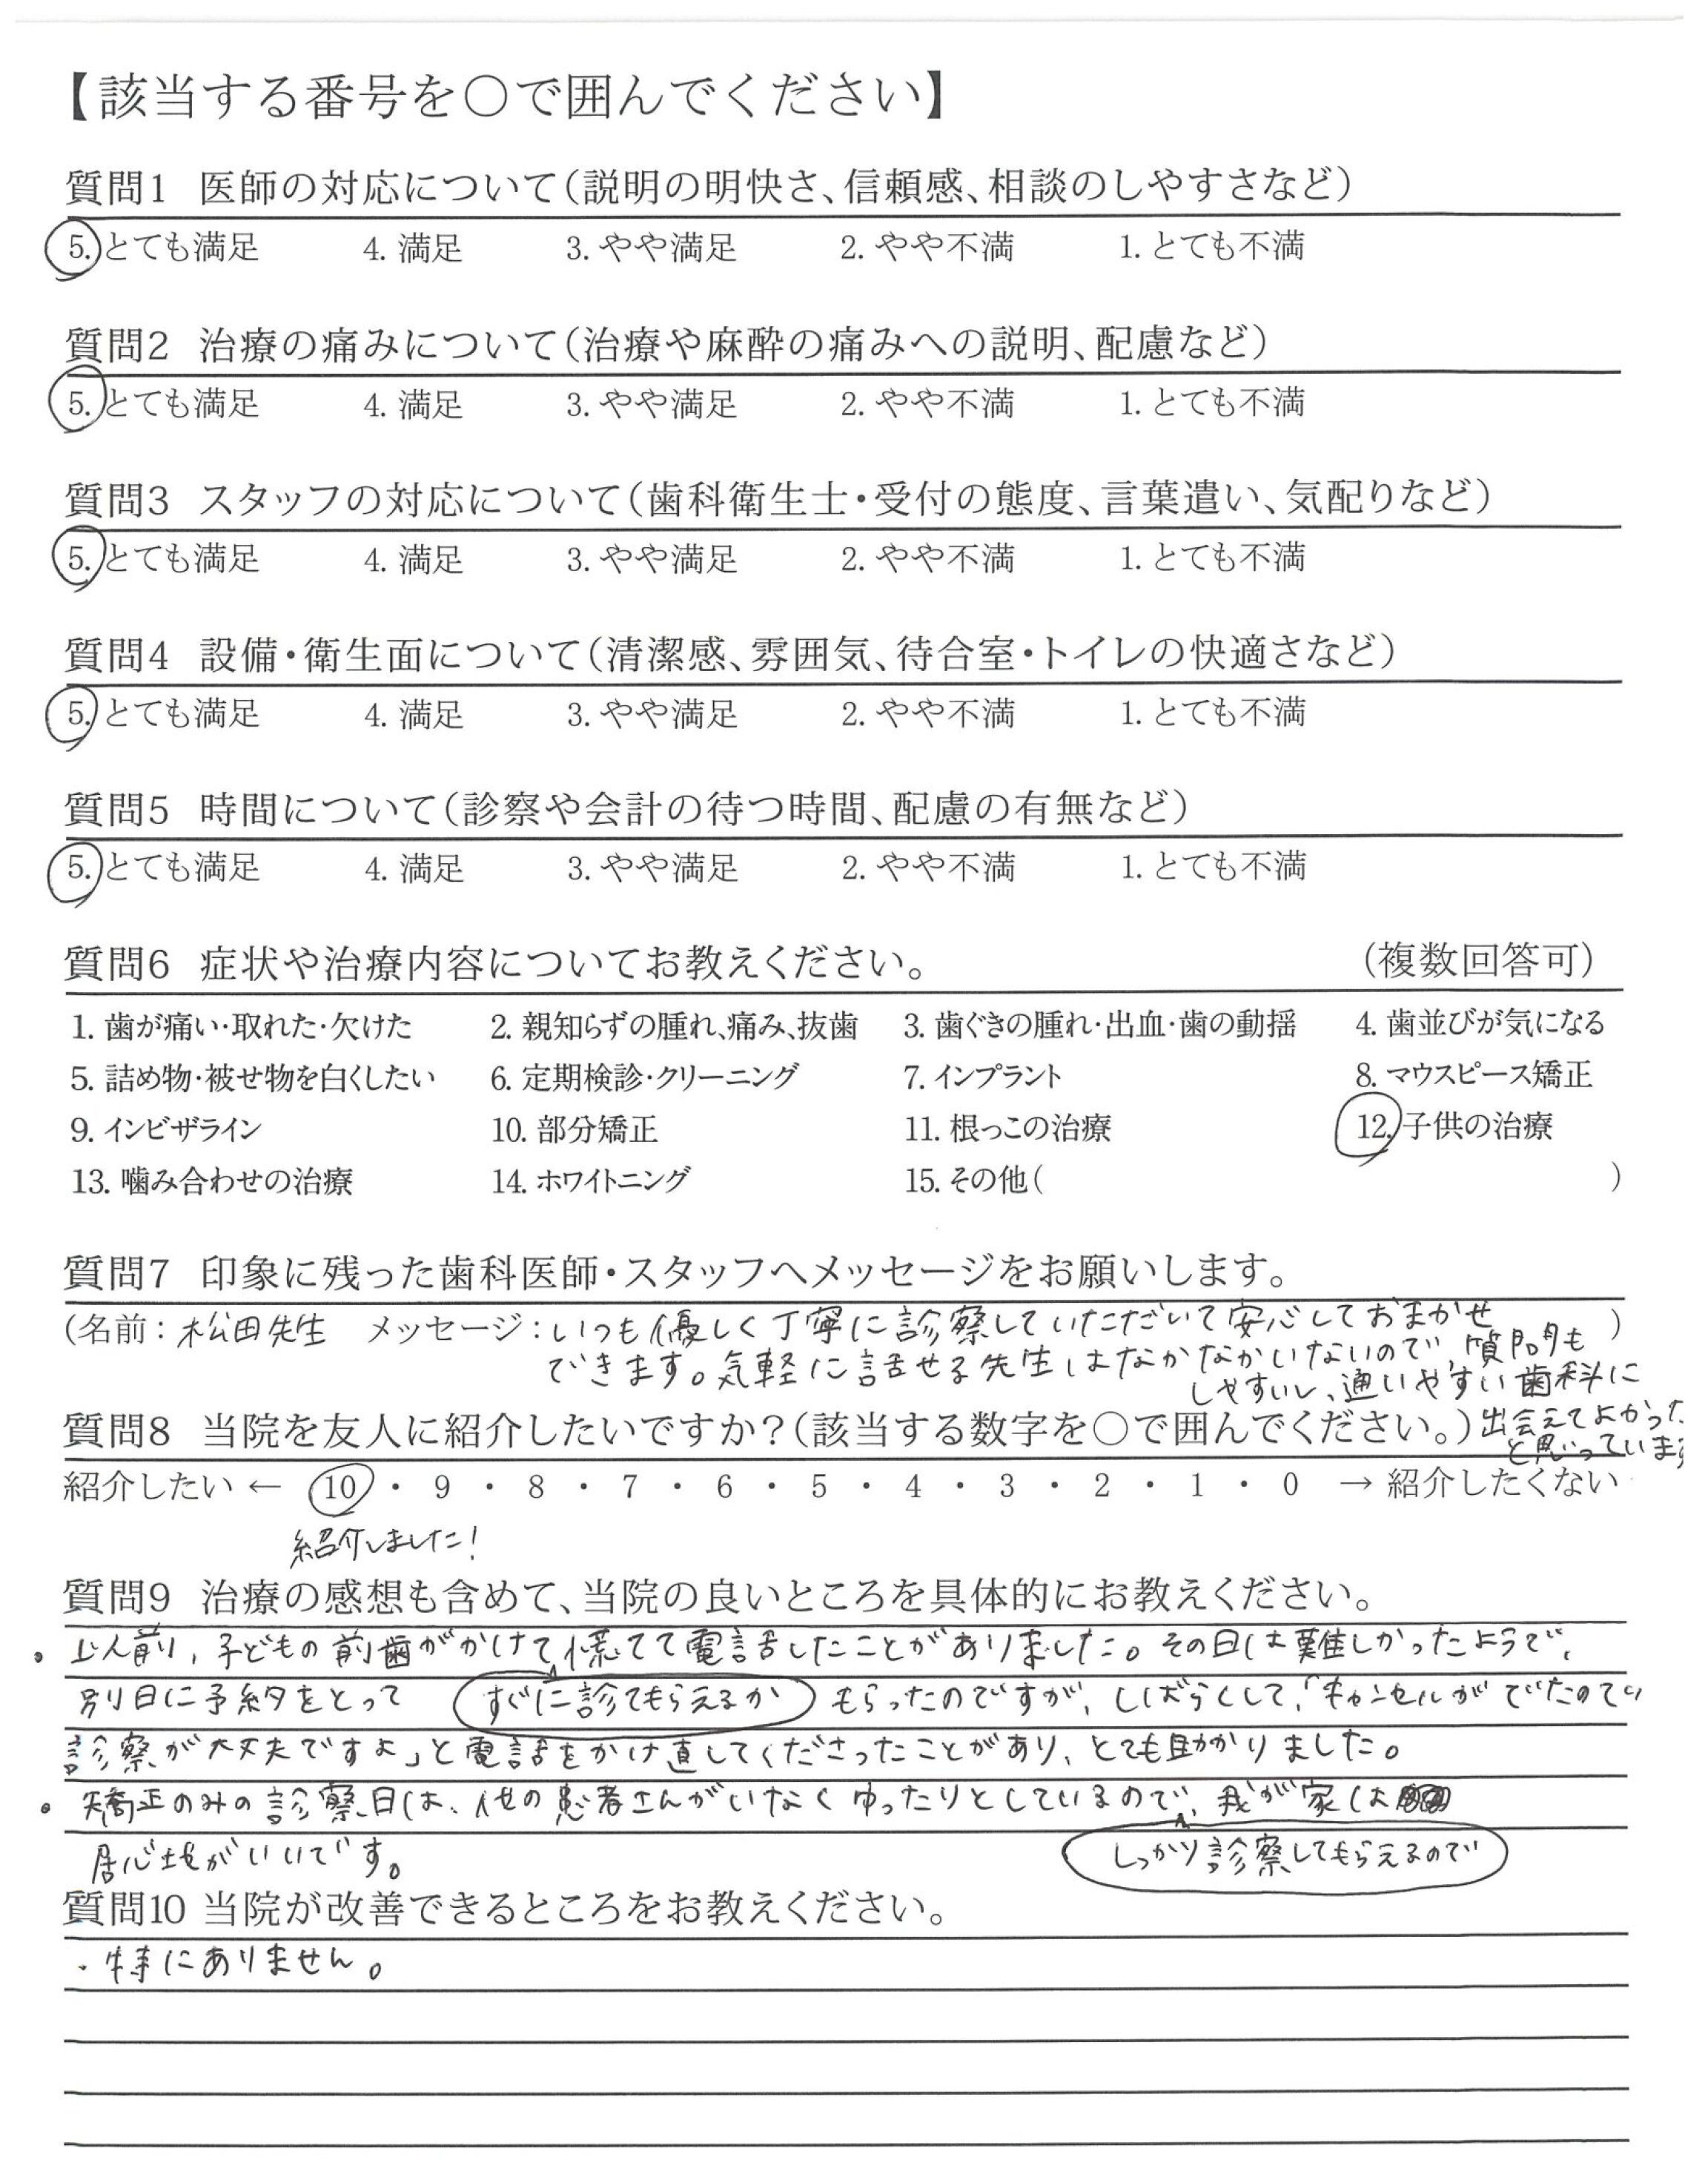 【該当する番号を〇で囲んでください】
質問1 医師の対応について(説明の明快さ、信頼感、相談のしやすさなど)
5. とても満足 4. 満足 3. やや満足 2. やや不満 1. とても不満
質問2 治療の痛みについて(治療や麻酔の痛みへの説明、配慮など)
5. とても満足 4. 満足 3. やや満足 2. やや不満 1. とても不満
質問3 スタッフの対応について(歯科衛生士・受付の態度、言葉遣い、気配りなど)
5. とても満足 4. 満足 3. やや満足 2. やや不満 1. とても不満
質問4 設備・衛生面について(清潔感、雰囲気、待合室・トイレの快適さなど)
5. とても満足 4. 満足 3. やや満足 2. やや不満 1. とても不満
質問5 時間について(診察や会計の待つ時間、配慮の有無など)
5. とても満足 4. 満足 3. やや満足 2. やや不満 1. とても不満
質問6 症状や治療内容についてお教えください。 (複数回答可)
1. 歯が痛い・取れた・欠けた 2. 親知らずの腫れ、痛み、抜歯 3. 歯ぐきの腫れ・出血・歯の動揺 4. 歯並びが気になる
5. 詰め物・被せ物を白くしたい 6. 定期検診・クリーニング 7. インプラント 8. マウスピース矯正
9. インビザライン 10. 部分矯正 11. 根っこの治療 12. 子供の治療
13. 噛み合わせの治療 14. ホワイトニング 15. その他( )
質問7 印象に残った歯科医師・スタッフへメッセージをお願いします。
(名前：松田先生 メッセージ：いつも優しく丁寧に診察していただいて安心しておまかせ )
できます。気軽に話せる先生はなかなかいないので、質問も
しやすいし、通いやすい歯科に
出会えてよかった
と思っています
質問8 当院を友人に紹介したいですか？(該当する数字を〇で囲んでください。)
紹介したい ← 10 ・ 9 ・ 8 ・ 7 ・ 6 ・ 5 ・ 4 ・ 3 ・ 2 ・ 1 ・ 0 → 紹介したくない
紹介しました！
質問9 治療の感想も含めて、当院の良いところを具体的にお教えください。
・以前、子どもの前歯がかけて慌てて電話したことがありました。その日は難しかったようで、
すぐに診てもらえるか
別日に予約をとって もらったのですが、しばらくして、「キャンセルがでたので
診察が大丈夫ですよ」と電話をかけ直してくださったことがあり、とても助かりました。
・矯正のみの診察日は、他の患者さんがいなくゆったりとしているので、我が家は
しっかり診察してもらえるので
居心地がいいです。
質問10 当院が改善できるところをお教えください。
・特にありません。